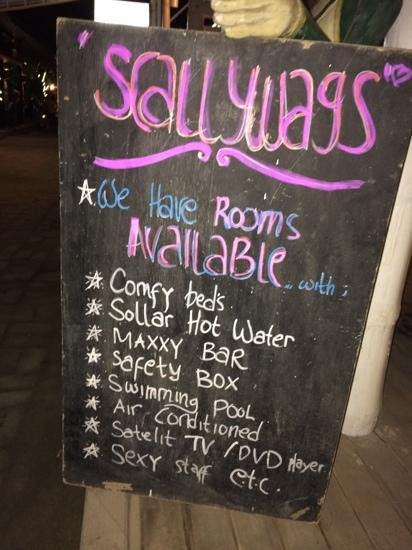 "Scallywags"
We Have Rooms
Available .. with ;
Comfy bed's
Sollar Hot Water
MAXXY BAR
Safety BOX
Swimming POOL
Air Conditioned
Satelit TV / DVD Player
Sexy staff e.t.c.